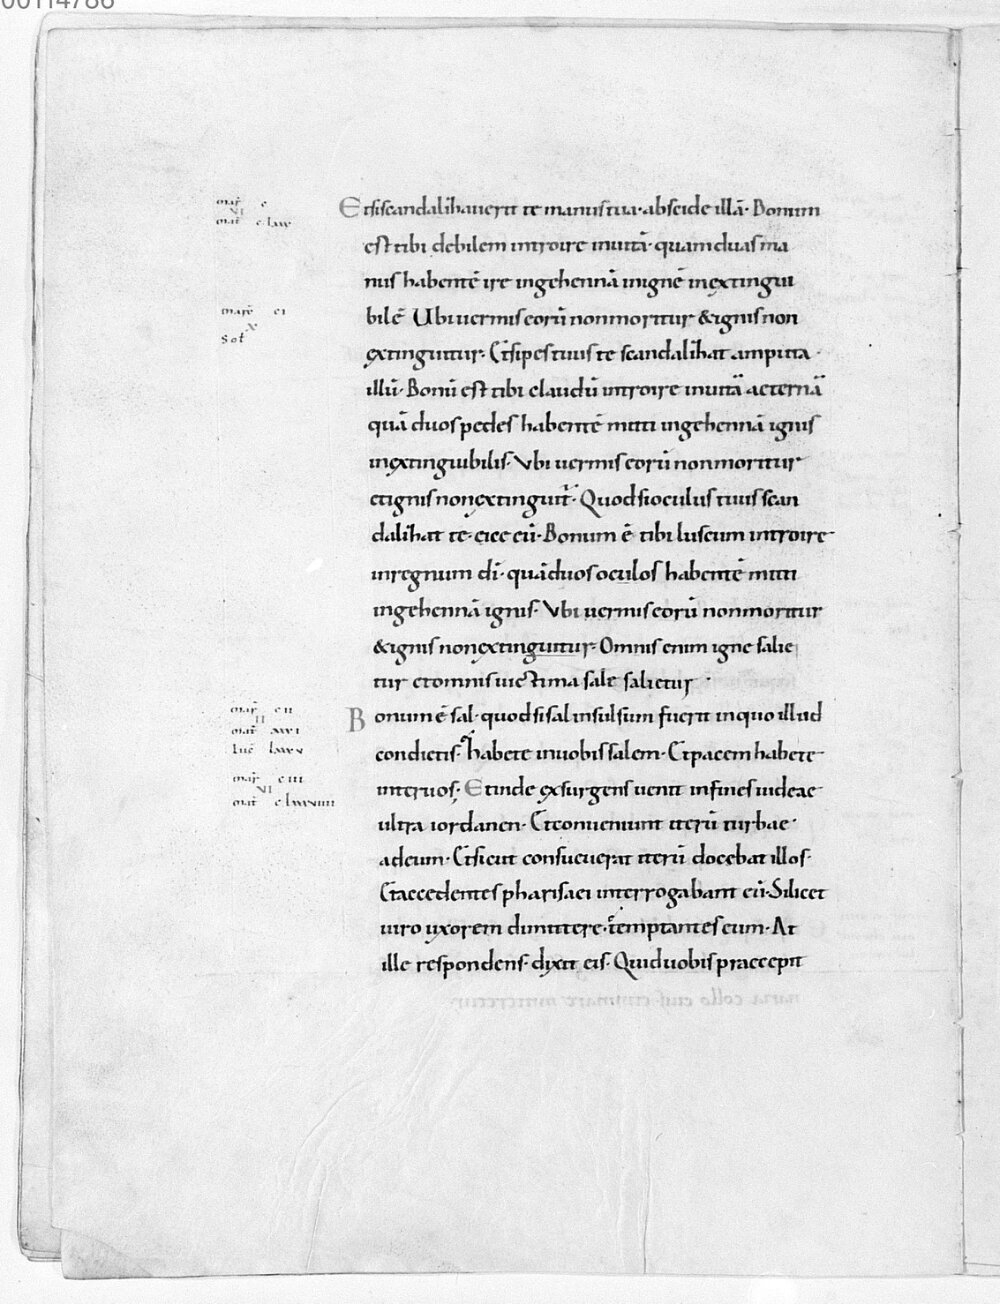 00114786
mar̄ c
VI
mat̄ clxxv
Etsi scandalizauerit te manus tua· abscide illā· Bonum
est tibi debilem introire inuitā· quam duas ma
nus habentē ire ingehennā inignē inextingui
mar̄ ci
X
Sol
bilē Ubi uermis eorū nonmoritur &ignis non
extinguitur· Et si pes tuus te scandalizat amputa
illū· Bonū est tibi claudū introire inuitā aeternā
quā duos pedes habentē mitti ingehennā ignis
inextinguibilis· Vbi uermis eorū nonmoritur
et ignis non extinguit̄· Quod si oculus tuus scan
dalizat te· eice eū· Bonum ē tibi luscum introire
inregnum dī· quā duos oculos habentē mitti
ingehennā ignis· Vbi uermis eorū nonmoritur
&ignis non extinguitur· Omnis enim igne salie
tur et omnis uictima sale salietur·
mar̄ cii
II
mat̄ xxxi
luc̄
Bonum ē sal· quod si sal insulsum fuerit inquo illud
condietis· habete inuobis salem· Et pacem habete
mar̄ ciii
VI
mat̄ clxxxviiii
inter uos; Et inde exsurgens uenit infines iudeae
ultra iordanen· Et conueniunt iterū turbae
adeum· Et sicut consueuerat iterū docebat illos·
Et accedentes pharisaei interrogabant eū· Si licet
uiro uxorem dimittere· temptantes eum· At
ille respondens· dixit eis· Quid uobis praecepit